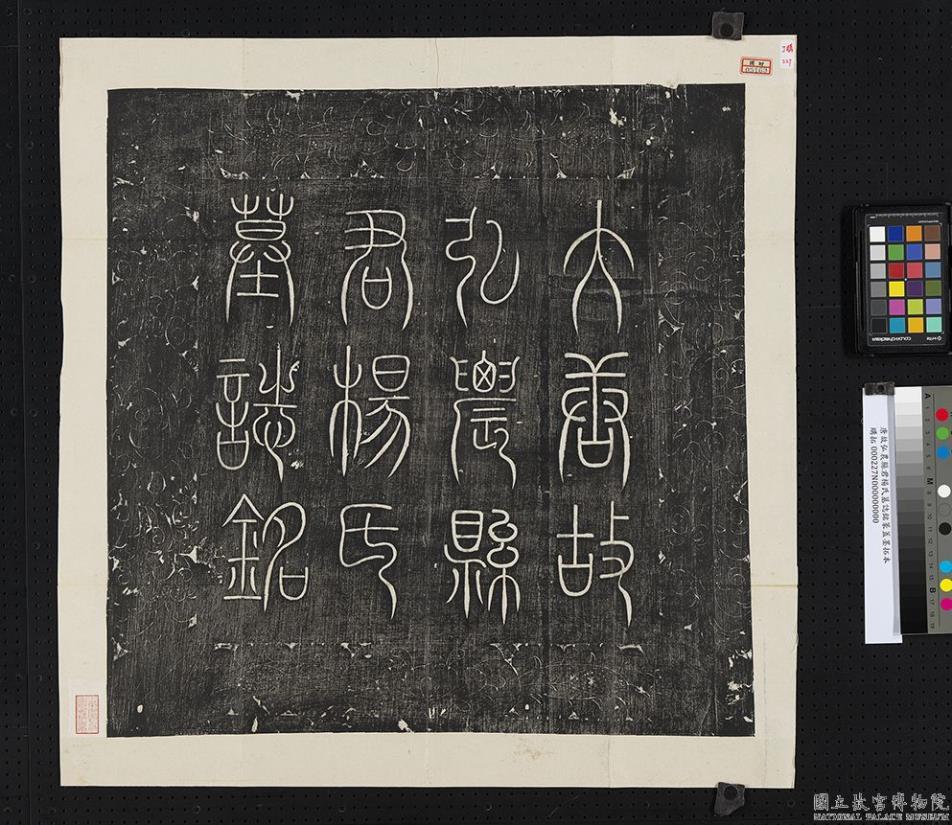 大唐故
弘農縣
君楊氏
墓誌銘
唐故弘農縣君楊氏墓誌銘篆蓋墨拓本
購拓 000227N000000000
國立故宮博物院
NATIONAL PALACE MUSEUM